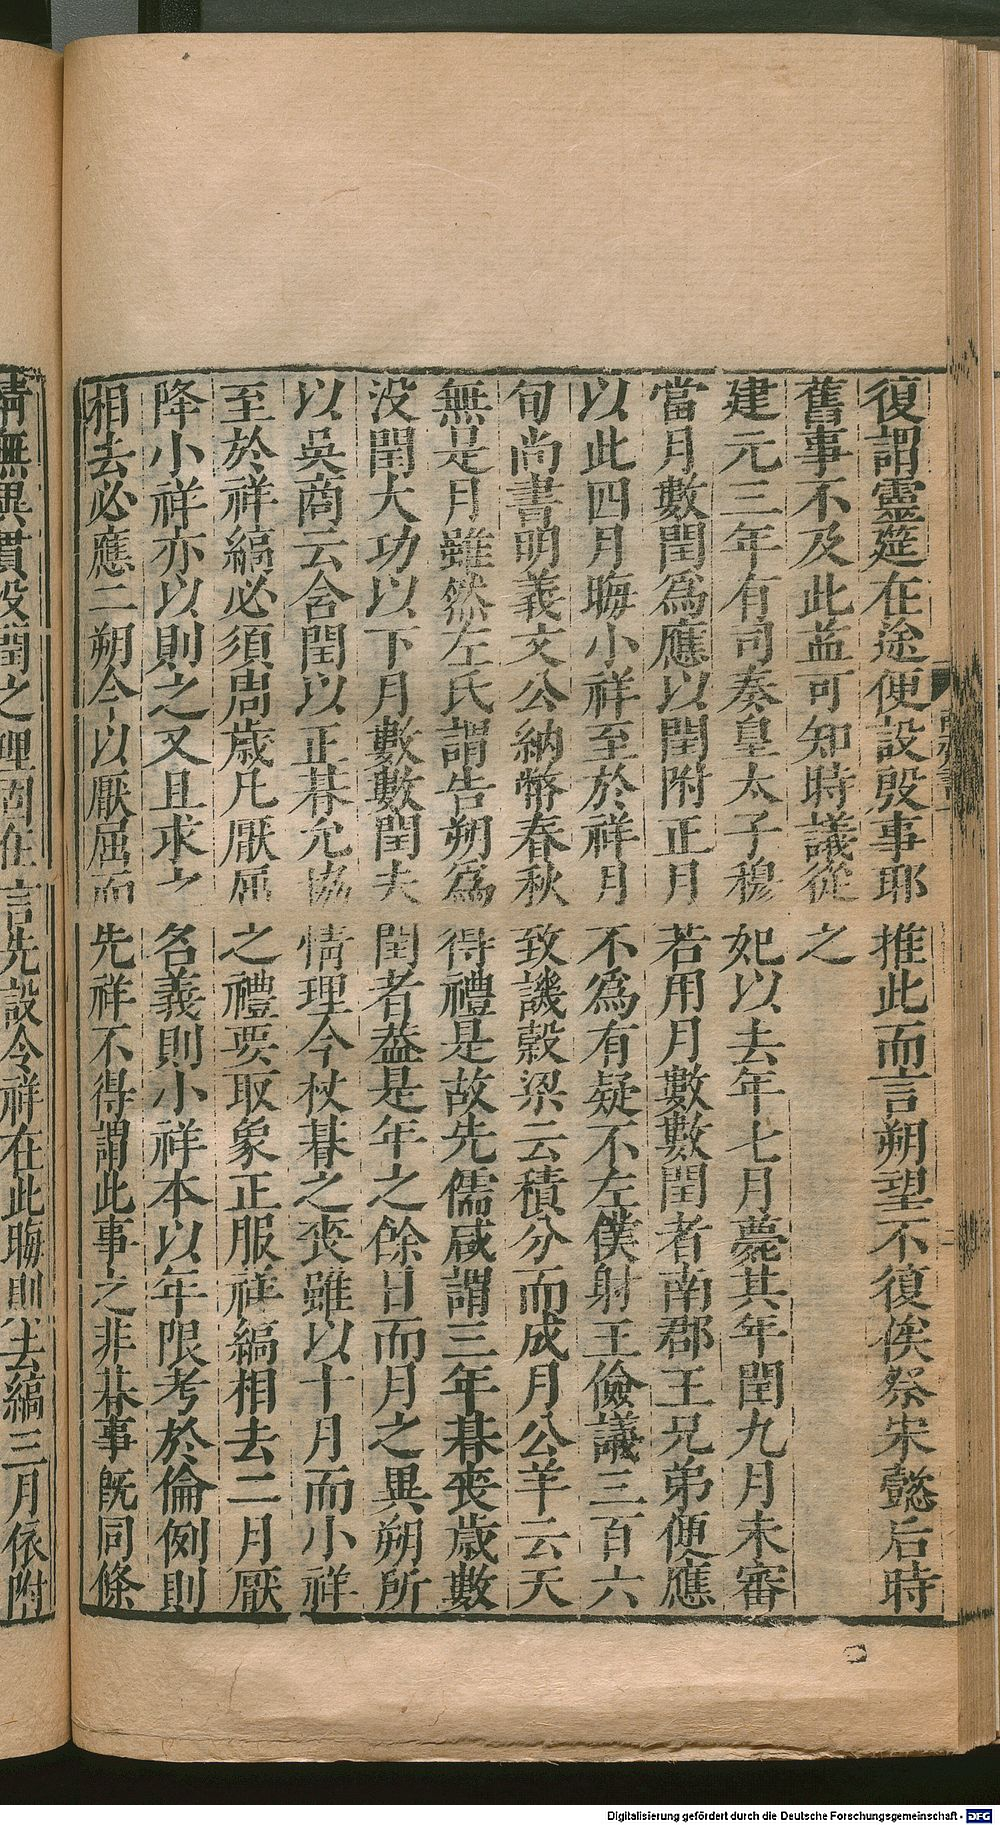 復謂靈筵在途便設殷事耶推此而言朔望不復俟祭宋懿后時
舊事不及此益可知時議從之
建元三年有司奏皇太子穆妃以去年七月薨其年閏九月未審
當月數閏爲應以閏附正月若用月數數閏者南郡王兄弟便應
以此四月晦小祥至於祥月不爲有疑不左僕射王儉議三百六
旬尚書明義文公納幣春秋致譏穀梁云積分而成月公羊云天
無是月雖然左氏謂告朔爲得禮是故先儒咸謂三年朞喪歲數
没閏大功以下月數數閏夫閏者蓋是年之餘日而月之異朔所
以吳商云含閏以正朞允協情理今杖朞之喪雖以十月而小祥
至於祥縞必須周歲凡厭屈之禮要取象正服祥縞相去二月厭
降小祥亦以則之又且求之名義則小祥本以年限考於倫例則
相去必應二朔今以厭屈而先祥不得謂此事之非朞事旣同條
情無異貫没閏之理固在言先設令祥在此晦則去縞三月依附
Digitalisierung gefördert durch die Deutsche Forschungsgemeinschaft - DFG